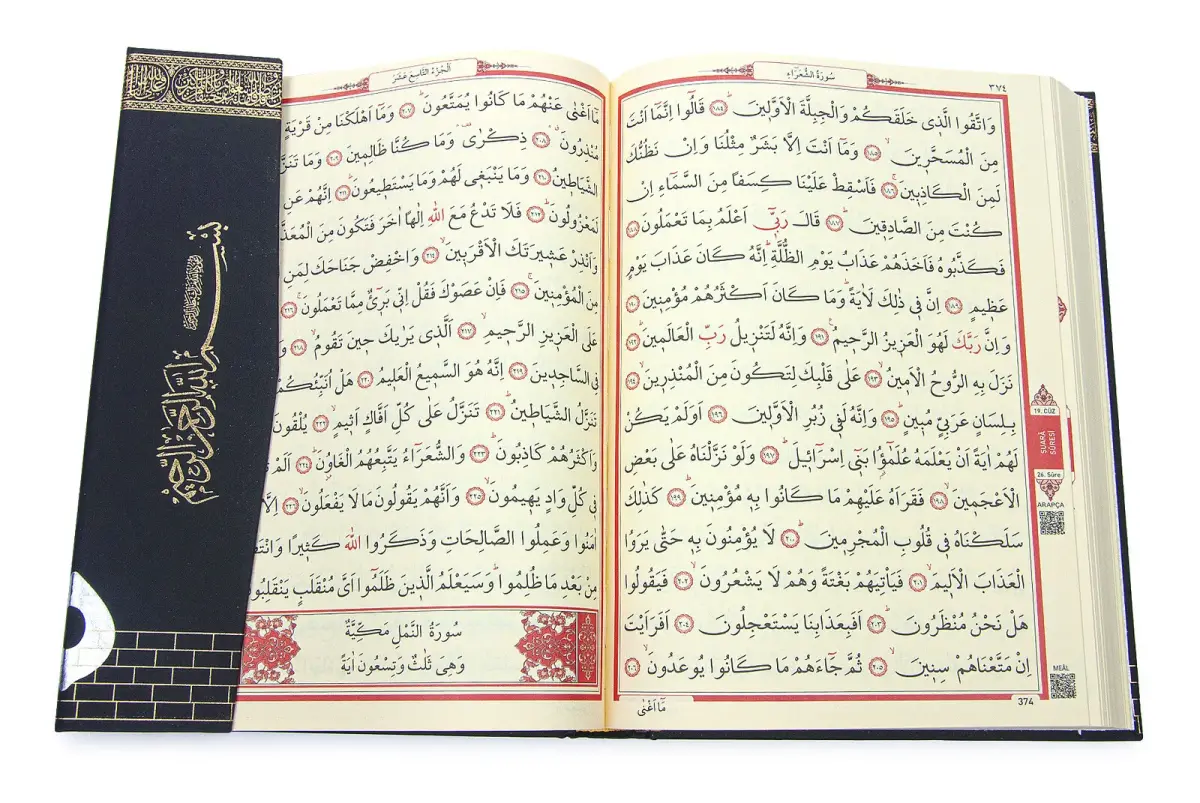 سُورَةُ الشُّعَرَاءِ
٣٧٤
وَاتَّقُوا الَّذ۪ي خَلَقَكُمْ وَالْجِبِلَّةَ الْاَوَّل۪ينَۜ ﴿١٨٤﴾ قَالُٓوا اِنَّمَٓا اَنْتَ
مِنَ الْمُسَحَّر۪ينَۙ ﴿١٨٥﴾ وَمَٓا اَنْتَ اِلَّا بَشَرٌ مِثْلُنَا وَاِنْ نَظُنُّكَ
لَمِنَ الْكَاذِب۪ينَۚ ﴿١٨٦﴾ فَاَسْقِطْ عَلَيْنَا كِسَفاً مِنَ السَّمَٓاءِ اِنْ
كُنْتَ مِنَ الصَّادِق۪ينَۜ ﴿١٨٧﴾ قَالَ رَبّ۪ٓي اَعْلَمُ بِمَا تَعْمَلُونَ ﴿١٨٨﴾
فَكَذَّبُوهُ فَاَخَذَهُمْ عَذَابُ يَوْمِ الظُّلَّةِۜ اِنَّهُ كَانَ عَذَابَ يَوْمٍ
عَظ۪يمٍ ﴿١٨٩﴾ اِنَّ ف۪ي ذٰلِكَ لَاٰيَةًۜ وَمَا كَانَ اَكْثَرُهُمْ مُؤْمِن۪ينَ ﴿١٩٠﴾
وَاِنَّ رَبَّكَ لَهُوَ الْعَز۪يزُ الرَّح۪يمُ۟ ﴿١٩١﴾ وَاِنَّهُ لَتَنْز۪يلُ رَبِّ الْعَالَم۪ينَۜ ﴿١٩٢﴾
نَزَلَ بِهِ الرُّوحُ الْاَم۪ينُۙ ﴿١٩٣﴾ عَلٰى قَلْبِكَ لِتَكُونَ مِنَ الْمُنْذِر۪ينَۙ ﴿١٩٤﴾
بِلِسَانٍ عَرَبِيٍّ مُب۪ينٍۜ ﴿١٩٥﴾ وَاِنَّهُ لَف۪ي زُبُرِ الْاَوَّل۪ينَ ﴿١٩٦﴾ اَوَلَمْ يَكُنْ
لَهُمْ اٰيَةً اَنْ يَعْلَمَهُ عُلَمٰٓؤُ۬ا بَن۪ٓي اِسْرَٓائ۪لَۜ ﴿١٩٧﴾ وَلَوْ نَزَّلْنَاهُ عَلٰى بَعْضِ
الْاَعْجَم۪ينَۙ ﴿١٩٨﴾ فَقَرَاَهُ عَلَيْهِمْ مَا كَانُوا بِه۪ مُؤْمِن۪ينَۜ ﴿١٩٩﴾ كَذٰلِكَ
سَلَكْنَاهُ ف۪ي قُلُوبِ الْمُجْرِم۪ينَۜ ﴿٢٠٠﴾ لَا يُؤْمِنُونَ بِه۪ حَتّٰى يَرَوُا
الْعَذَابَ الْاَل۪يمَۙ ﴿٢٠١﴾ فَيَأْتِيَهُمْ بَغْتَةً وَهُمْ لَا يَشْعُرُونَۙ ﴿٢٠٢﴾ فَيَقُولُوا
هَلْ نَحْنُ مُنْظَرُونَۜ ﴿٢٠٣﴾ اَفَبِعَذَابِنَا يَسْتَعْجِلُونَ ﴿٢٠٤﴾ اَفَرَاَيْتَ
اِنْ مَتَّعْنَاهُمْ سِن۪ينَۙ ﴿٢٠٥﴾ ثُمَّ جَٓاءَهُمْ مَا كَانُوا يُوعَدُونَۙ ﴿٢٠٦﴾
مَٓا اَغْنٰى
374
19. CÜZ
ŞUARÂ
SÛRESİ
26. Sûre
ARAPÇA
MEÂL
اَلْجُزْءُ التَّاسِعَ عَشَرَ
مَٓا اَغْنٰى عَنْهُمْ مَا كَانُوا يُمَتَّعُونَۜ ﴿٢٠٧﴾ وَمَٓا اَهْلَكْنَا مِنْ قَرْيَةٍ
مُنْذِرُونَۗ ﴿٢٠٨﴾ ذِكْرٰى۠ وَمَا كُنَّا ظَالِم۪ينَ ﴿٢٠٩﴾ وَمَا تَنَزَّ
الشَّيَاط۪ينُ ﴿٢١٠﴾ وَمَا يَنْبَغ۪ي لَهُمْ وَمَا يَسْتَط۪يعُونَۜ ﴿٢١١﴾ اِنَّهُمْ عَنِ
لَمَعْزُولُونَۜ ﴿٢١٢﴾ فَلَا تَدْعُ مَعَ اللّٰهِ اِلٰهاً اٰخَرَ فَتَكُونَ مِنَ الْمُعَذَّ
وَاَنْذِرْ عَش۪يرَتَكَ الْاَقْرَب۪ينَۙ ﴿٢١٤﴾ وَاخْفِضْ جَنَاحَكَ لِمَنِ
مِنَ الْمُؤْمِن۪ينَۚ ﴿٢١٥﴾ فَاِنْ عَصَوْكَ فَقُلْ اِنّ۪ي بَر۪ٓيءٌ مِمَّا تَعْمَلُونَۚ ﴿٢١٦﴾
عَلَى الْعَز۪يزِ الرَّح۪يمِۙ ﴿٢١٧﴾ اَلَّذ۪ي يَرٰيكَ ح۪ينَ تَقُومُۙ ﴿٢١٨﴾ وَ
فِي السَّاجِد۪ينَ ﴿٢١٩﴾ اِنَّهُ هُوَ السَّم۪يعُ الْعَل۪يمُ ﴿٢٢٠﴾ هَلْ اُنَبِّئُكُمْ
تَنَزَّلُ الشَّيَاط۪ينُۜ ﴿٢٢١﴾ تَنَزَّلُ عَلٰى كُلِّ اَفَّاكٍ اَث۪يمٍۙ ﴿٢٢٢﴾ يُلْقُونَ
وَاَكْثَرُهُمْ كَاذِبُونَۜ ﴿٢٢٣﴾ وَالشُّعَرَٓاءُ يَتَّبِعُهُمُ الْغَاوُ۫نَۜ ﴿٢٢٤﴾ اَلَمْ
ف۪ي كُلِّ وَادٍ يَه۪يمُونَۙ ﴿٢٢٥﴾ وَاَنَّهُمْ يَقُولُونَ مَا لَا يَفْعَلُونَۙ ﴿٢٢٦﴾ اِلَّا
اٰمَنُوا وَعَمِلُوا الصَّالِحَاتِ وَذَكَرُوا اللّٰهَ كَث۪يراً وَانْتَ
مِنْ بَعْدِ مَا ظُلِمُواۜ وَسَيَعْلَمُ الَّذ۪ينَ ظَلَمُٓوا اَيَّ مُنْقَلَبٍ يَنْقَلِبُو
سُورَةُ النَّمْلِ مَكِّيَّةٌ
وَهِيَ ثَلٰثٌ وَتِسْعُونَ اٰيَةً
بسم الله الرحمن الرحيم